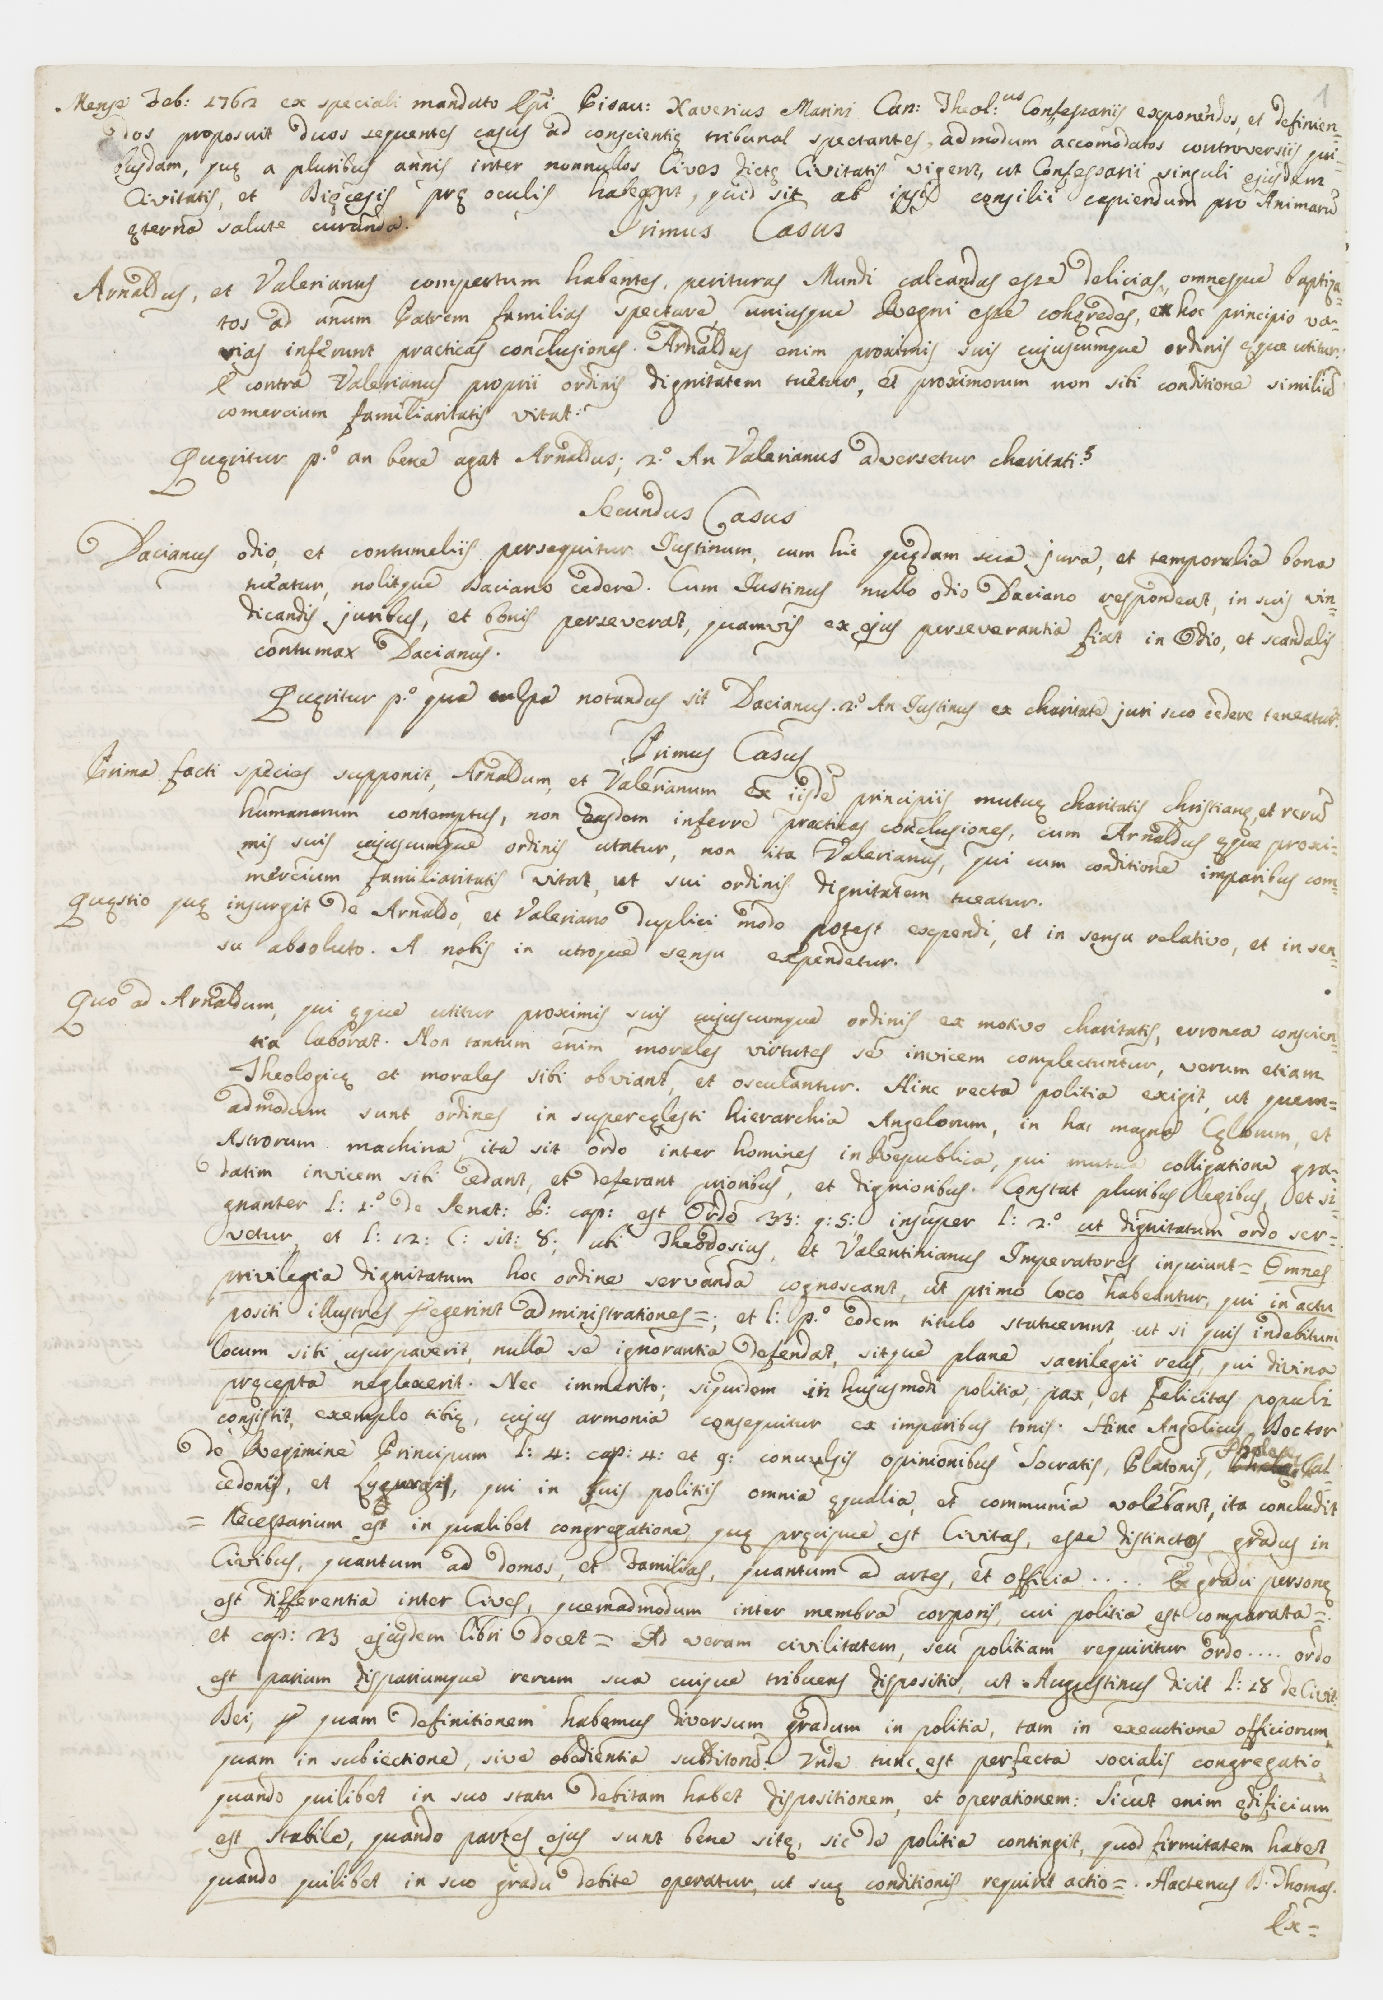 1
Mense Feb: 1762 ex speciali mandato Epi Pisau: Xaverius Marini Can: Theol:us Confessariis exponendos, et definien=
dos proposuit duos sequentes casus ad conscientię tribunal spectantes, admodum accomodatos controversiis qui=
busdam, quę a pluribus annis inter nonnullos Cives dictę Civitatis vigent, ut Confessarii singuli ejusdem
Civitatis, et Dięcesis prę oculis habeant, quid sit ab ipsis consilii capiendum pro Animarū
ęterna salute curanda.
Primus Casus
Arnaldus, et Valerianus compertum habentes, perituras Mundi calcandas esse delicias, omnesque baptiza=
tos ad unum Patrem familias spectare, uniusque Regni esse cohęredes, ex hoc principio va=
rias inferunt practicas conclusiones. Arnaldus enim proximis suis cujuscumque ordinis ęque utitur:
E contra Valerianus proprii ordinis dignitatem tuetur, et proximorum non sibi conditione similiū
comercium familiaritatis vitat:
Quęritur p.o an bene agat Arnaldus; 2.o An Valerianus adversetur charitati?
Secundus Casus
Dacianus odio, et contumeliis persequitur Justinum, cum hic quędam sua jura, et temporalia bona
tueatur, nolitque Daciano cedere. Cum Justinus nullo odio Daciano respondeat, in suis vin=
dicandis juribus, et bonis perseverat, quamvis ex ejus perseverantia fiat in Odio, et scandalis
contumax Dacianus.
Quęritur p.o qua culpa notandus sit Dacianus. 2.o An Justinus ex charitate juri suo cedere teneatur.
Primus Casus
Prima facti species supponit, Arnaldum, et Valerianum ex iisdē principiis mutuę charitatis christianę, et rerū
humanarum contemptus, non easdem inferre practicas conclusiones, cum Arnaldus ęque proxi=
mis suis cujuscumque ordinis utatur, non ita Valerianus, qui cum conditione imparibus com=
mercium familiaritatis vitat, ut sui ordinis dignitatem tueatur.
Quęstio quę insurgit de Arnaldo, et Valeriano duplici modo potest expendi, et in sensu relativo, et in sen=
su absoluto. A nobis in utroque sensu expendetur.
Quo ad Arnaldum, qui ęque utitur proximis suis cujuscumque ordinis ex motivo charitatis, erronea conscien=
tia laborat. Non tantum enim morales virtutes se invicem complectuntur, verum etiam
Theologicę et morales sibi obviant, et osculantur. Hinc recta politia exigit, ut quem=
admodum sunt ordines in supercęlesti hierarchia Angelorum, in hac magna Cęlorum, et
Astrorum machina, ita sit ordo inter homines in Republica, qui mutua colligatione gra=
datim invicem sibi cedant, et deferant prioribus, et dignioribus. Constat pluribus legibus, et si=
gnanter l: 1.o de Senat: P: cap: est Ordo 33: q: 5: insuper l: 2.o ut dignitatum ordo ser=
vetur, et l: 12: C: sit: 8: ubi Theodosius, et Valentinianus Imperatores injuiunt= Omnes
privilegia dignitatum hoc ordine servanda cognoscant, ut primo loco habeantur, qui in actu
positi illustres fegerint administrationes=; et l: p.o eodem titulo statuerunt, ut si quis indebitum
locum sibi usurpaverit, nulla se ignorantia defendat, sitque plane sacrilegii reus, qui divina
pręcepta neglexerit. Nec immerito; siquidem in hujusmodi politia, pax, et felicitas populi
consistit, exemplo tibię, cujus armonia consequitur ex imparibus tonis. Hinc Angelicus Doctor
de Regimine Principum l: 4: cap: 4: et 9: convulsis opinionibus Socratis, Platonis, Phaleę Cal=
cedonis, et Lygurgis, qui in suis politiis omnia ęqualia, et communia volebant, ita concludit
= Necessarium est in qualibet congregatione, quę pręcipue est Civitas, esse distinctos gradus in
Civibus, quantum ad domos, et Familias, quantum ad artes, et officia .... Ex gradu personę
est differentia inter Cives, quemadmodum inter membra corporis, cui politia est comparata=
et cap: 23 ejusdem libri docet= Ad veram civilitatem, seu politiam requiritur ordo .... ordo
est parium dispariumque rerum sua cuique tribuens dispositio, ut Augustinus dicit l: 18 de Civit:
Dei, p quam definitionem habemus diversum gradum in politia, tam in executione officiorum,
quam in subiectione, sive obedientia subditorū: Unde tunc est perfecta socialis congregatio,
quando quilibet in suo statu debitam habet dispositionem, et operationem: Sicut enim ędificium
est stabile, quando partes ejus sunt bene sitę, sic de politia contingit, quod firmitatem habet
quando quilibet in suo gradu debite operatur, ut suę conditionis requirit actio=. Hactenus D. Thomas.
Ex=